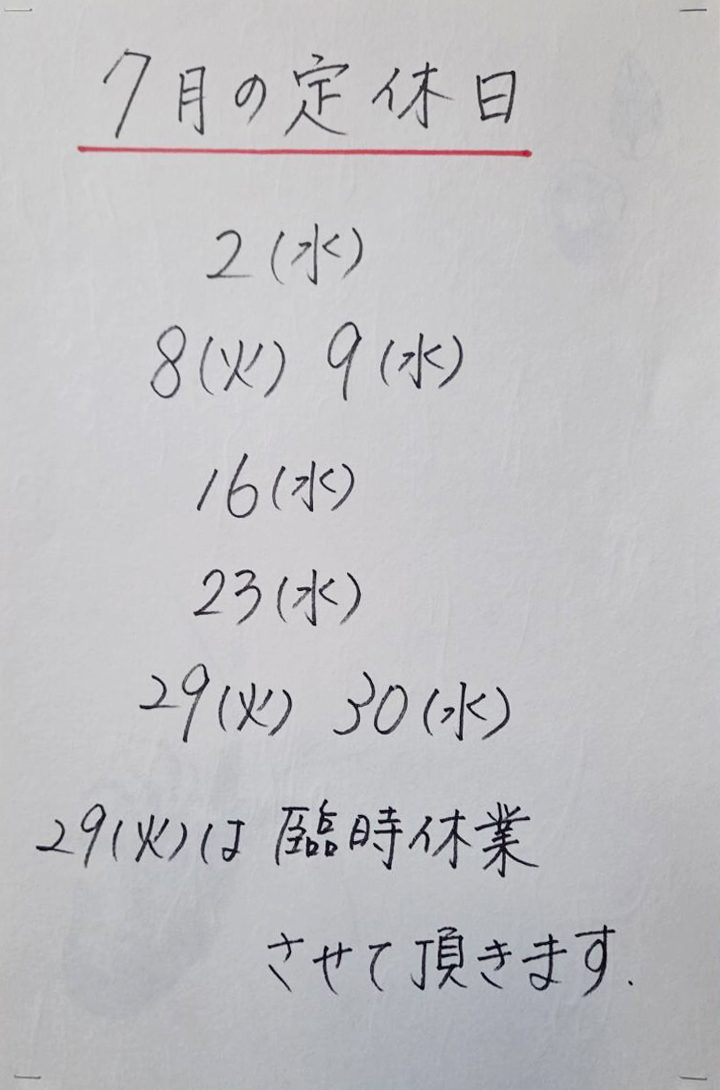 7月の定休日
2(水)
8(火) 9(水)
16(水)
23(水)
29(火) 30(水)
29(火)は臨時休業
させて頂きます.